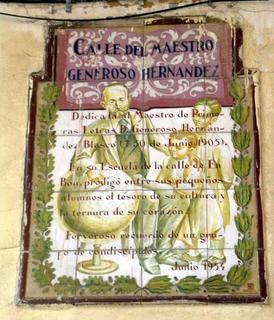 CALLE DEL MAESTRO
GENEROSO HERNANDEZ
Dedicada al Maestro de Prime-
ras Letras D. Generoso Hernan-
dez Blasco († 30 de Junio 1905).
En su Escuela de la calle de En
Bou, prodigó entre sus pequeños
alumnos el tesoro de su cultura y
la ternura de su corazón.
Fervoroso recuerdo de un gru-
po de condiscípulos.
Junio 1953